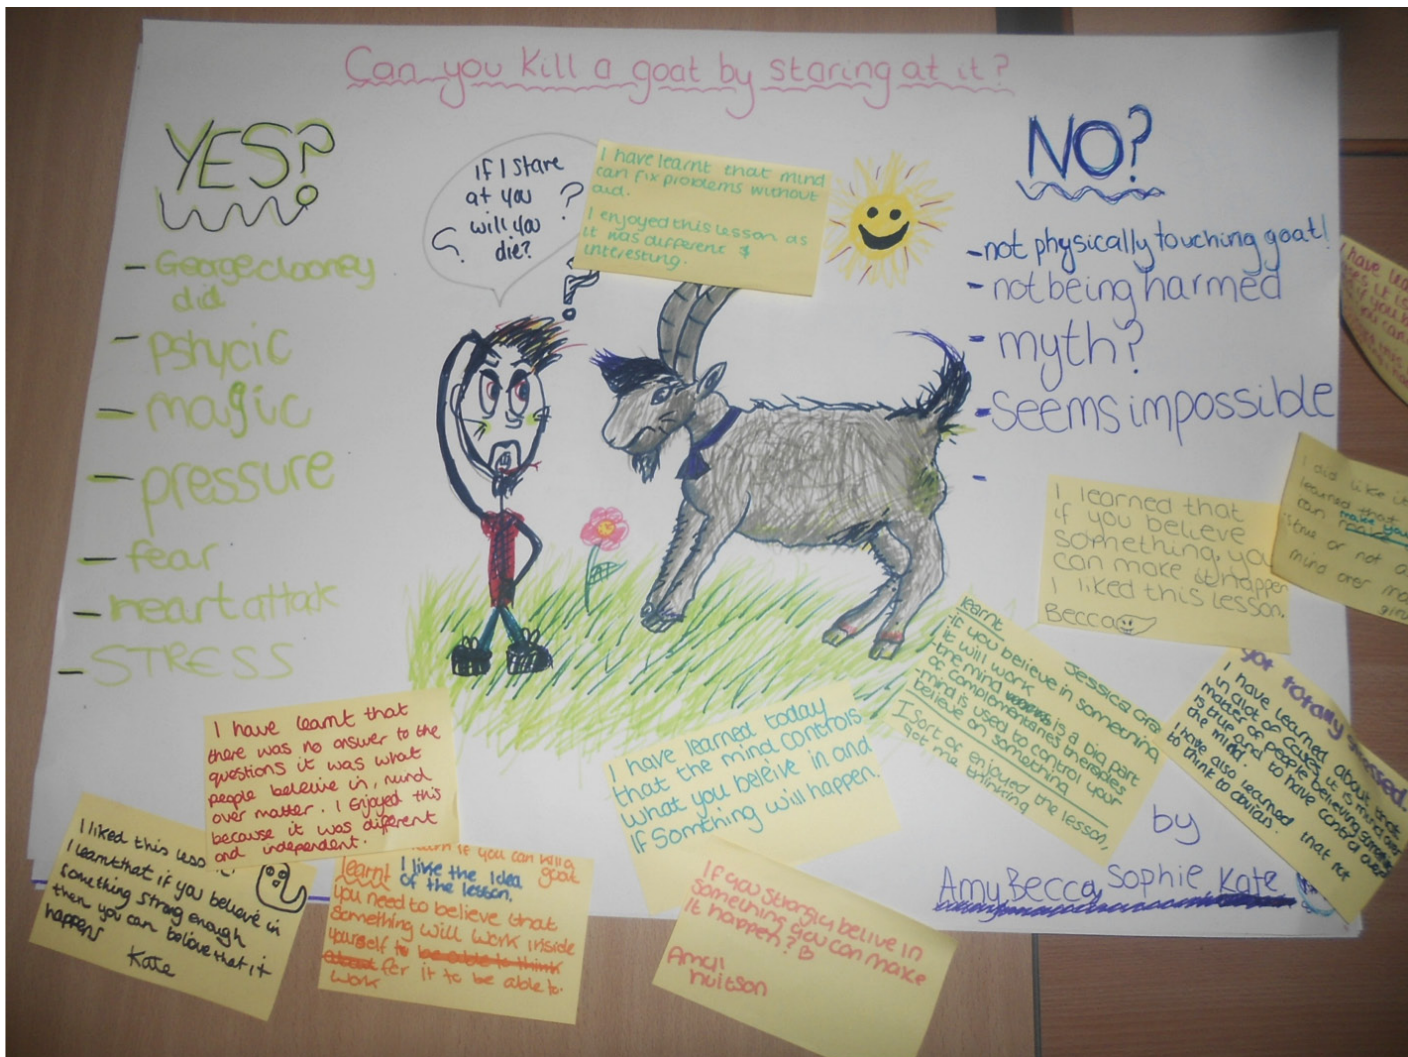 Can you Kill a goat by staring at it?
YES?
- George clooney
did
- pshycic
- magic
- pressure
- fear
- heart attak
- STRESS
If I stare
at you
will you
die?
?
?
?
I have learnt that mind
can fix problems without
aid.
I enjoyed this lesson as
it was different &
interesting.
NO?
- not physically touching goat!
- not being harmed
- myth?
- seems impossible
-
I learned that
if you believe
something, you
can make it happen
I liked this lesson.
Becca
I did like it
learned that
can make you
is true or not a
mind over ma
learnt
Jessica Gra
- if you believe in something
it will work
- the mind is a big part
of complementaries therapies
- mind is used to control your
believe on something
I sort of enjoyed the lesson,
got me thinking
got totally
I have learned about that
in alot of cases that is mind over
matter of people believing something
is true and to have control over
the mind.
I have also learned that not
to think to obvious.
I have learnt that
there was no answer to the
questions it was what
people beleive in, mind
over matter. I enjoyed this
because it was different
and independent.
I have learned today
that the mind controls
what you beleive in and
if Somthing will happen.
I liked this less
I learnt that if you believe in
something strong enough
then you can believe that it
happens
Kate
if you can kill a
learnt I like the idea goat
of the lesson.
you need to believe that
something will work inside
yourself to be able to think
about for it to be able to
work
If you strongly belive in
something you can make
it happen?
Amy
by
Amy Becca, Sophie Kate